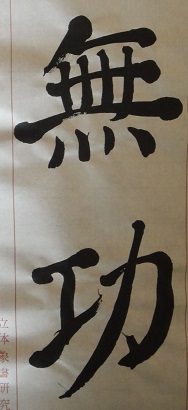 無功
立体篆書研究